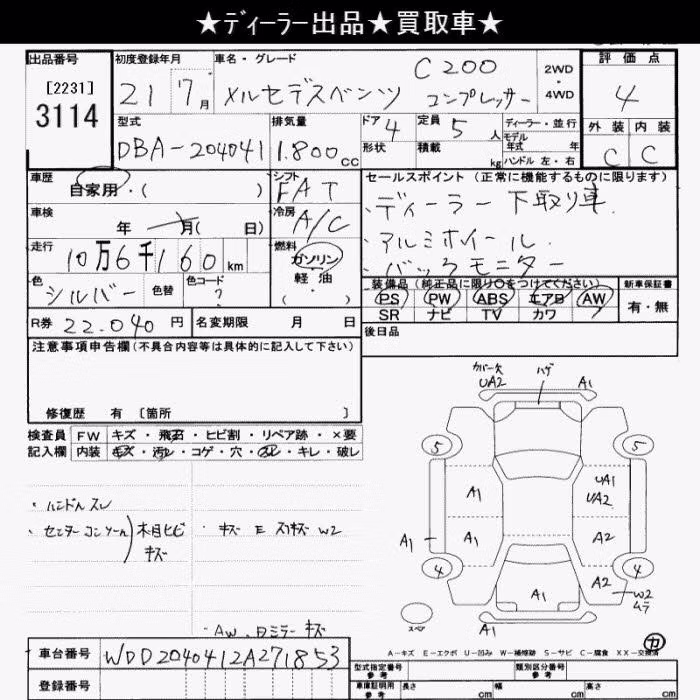 ★ディーラー出品★買取車★
出品番号 初度登録年月 車名・グレード 評価点
[2231]
3114
21 7月 メルセデスベンツ C200 コンプレッサー
2WD・4WD
4
型式 排気量 ドア 定員 ディーラー・並行
DBA-204041 1.800cc 4 5人
モデル年式 年
形状 積載 kg ハンドル 左・右
外装 内装
C C
車歴 自家用・( )
シフト FAT
車検 年 月( 日)
冷房 A/C
走行 10万6千160km
燃料 ガソリン・軽油・( )
色 シルバー 色替 色コード ?
R券 22.040円 名変期限 月 日
セールスポイント(正常に機能するものに限ります)
・ディーラー下取り車
・アルミホイール
・バックモニター
装備品(純正品に限り○をつけてください) 新車保証書
PS PW ABS エアB AW 有・無
SR ナビ TV カワ
後日品
注意事項申告欄(不具合内容等は具体的に記入して下さい)
修復歴 有 [箇所 ]
検査員 FW キズ・飛石・ヒビ割・リペア跡・×要
記入欄 内装 キズ・汚レ・コゲ・穴・スレ・キレ・破レ
・ハンドルスレ
・センターコンソール)木目ヒビ キズ
・キズ E スリキズ W2
・AW、日ミラーキズ
カバー欠 UA2 ハゲ A1
5 5
A1 UA1 UA2
A1 A1 A2
4 4
A1 A2 W2 ムラ
スペア A1
A-キズ E-エクボ U-凹み W-補修跡 S-サビ C-腐食 XX-交換済
車台番号 WDD2040412A271853
登録番号
型式指定番号 参考 類別区分番号 参考
車庫証明用 参考 長さ cm 幅 cm 高さ cm